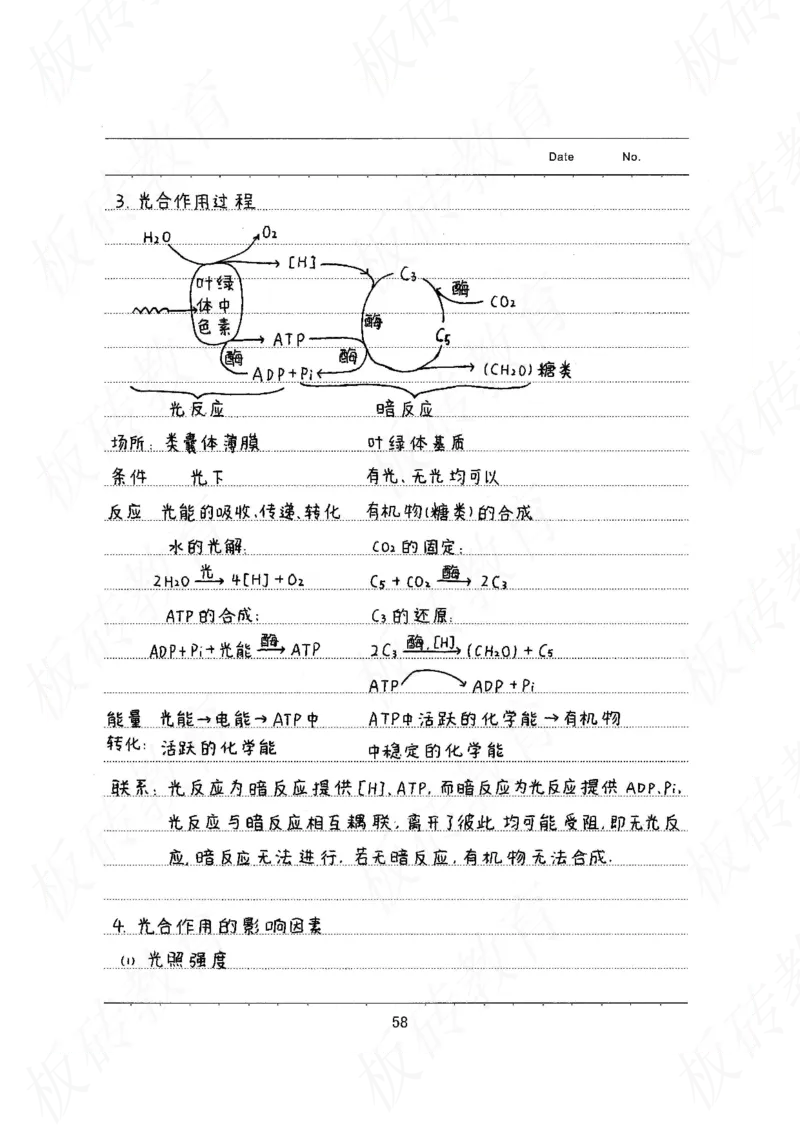 Date No.
3. 光合作用过程
H₂O O₂
[H]
C₃
叶绿
体中
色素
酶
CO₂
酶
C₅
ATP
酶 酶
ADP+Pi (CH₂O) 糖类
光反应 暗反应
场所: 类囊体薄膜 叶绿体基质
条件 光下 有光、无光均可以
反应 光能的吸收、传递、转化 有机物(糖类)的合成
水的光解: CO₂的固定:
2H₂O 光→ 4[H]+O₂ C₅+CO₂ 酶→ 2C₃
ATP的合成: C₃的还原:
ADP+Pi+光能 酶→ ATP 2C₃ 酶,[H]→ (CH₂O)+C₅
ATP → ADP+Pi
能量 光能→电能→ATP中 ATP中活跃的化学能→有机物
转化: 活跃的化学能 中稳定的化学能
联系: 光反应为暗反应提供[H]、ATP, 而暗反应为光反应提供 ADP、Pi,
光反应与暗反应相互耦联, 离开了彼此均可能受阻,即无光反
应,暗反应无法进行. 若无暗反应,有机物无法合成.
4. 光合作用的影响因素
(1) 光照强度
58
板砖教育